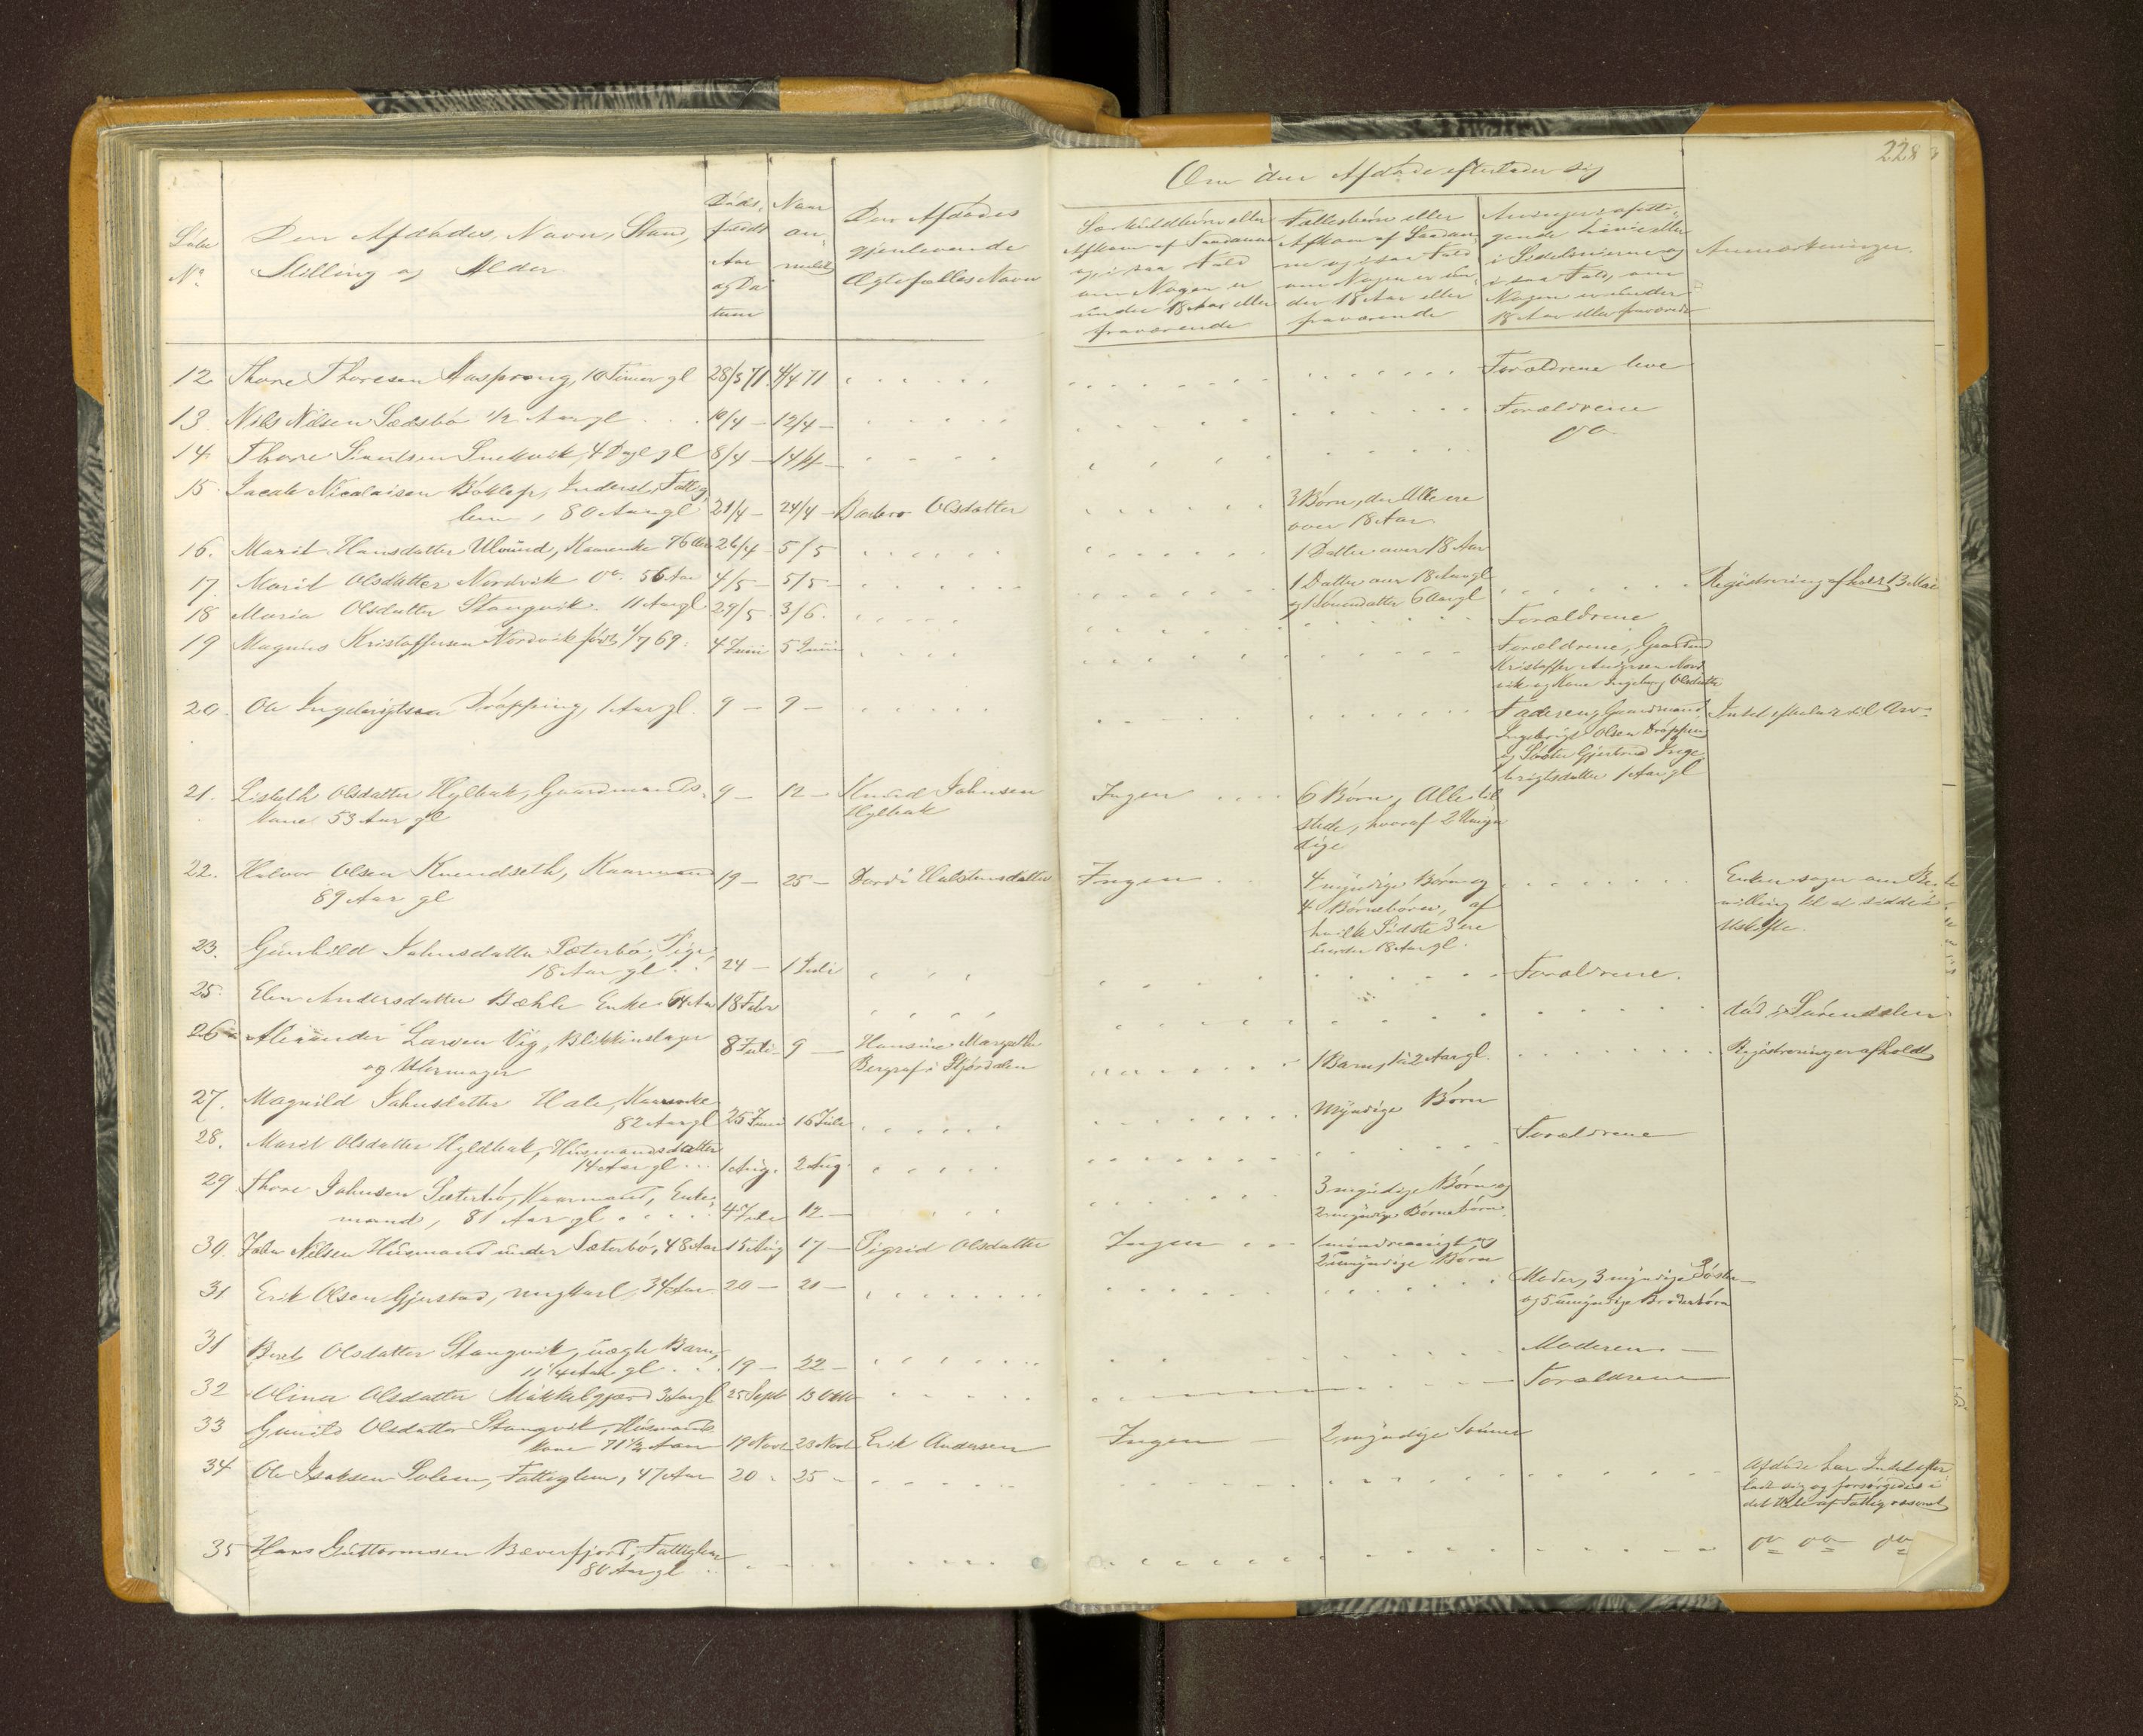 228
Om den Afdøde efterlader sig
Løbe
No
Den Afdødes Navn, Stand,
Stilling og Alder
Døds-
fældt
Aar
og Da
tum
Naar
an-
meldt
Den Afdødes
gjenlevende
Ægtefælles Navn
Særkuldbørn eller
Afkom af Saadanne
og i saa Fald
om Nogen er
under 18 Aar eller
fraværende
Fællesbørn eller
Afkom af Saadan
ne og i saa Fald
om Nogen er un-
der 18 Aar eller
fraværende
Arvinger i opsti-
gende Linie eller
i Sidelinierne og
i saa Fald, om
Nogen er under
18 Aar eller fraværende
Anmærkninger.
12 Thore Thoresen Aasprong, 10 Timer gl 28/3 71. 4/4 71 Forældrene leve
13. Nils Nilsen Sædsbø 1/2 Aar gl 10/4 - 12/4 - Forældrene
14. Thore Snekvik, 4 Dage gl 8/4 - 14/4 - do
15. Jacob Nicolaisen Bøklep, Inderst, Fattig
lem, 80 Aar gl 21/4 - 24/4 - Barbro Olsdatter 3 Børn, der Alle ere
over 18 Aar
16. Marit Hansdatter Ulvund, Kaarenke 76 Aar 26/4 - 5/5 1 Datter over 18 Aar
17. Marit Olsdatter Nordvik do. 56 Aar 4/5 - 5/5 - 1 Datter over 18 Aar gl
og Sønnedatter 6 Aar gl Registrering afholdt 13 Mai
18 Maria Olsdatter Stangvik. 11 Aar gl 29/5. 3/6. Forældrene
19 Magnus Kristoffersen Nordvik født 1/7 69. 4 Juni 5 Juni Forældrene, Gaardmd
Kristoffer Andersen Nord
vik og Kone Ingeborg Olsdatter
20. Ole Ingebrigtsen Drøpping, 1 Aar gl. 9 - 9 - Faderen, Gaardmand Intet efterladt til Arv.
Ingebrigt Olsen Drøpping
og Søster Gjertrud Inge
brigtsdatter 1 Aar gl
21. Lisbeth Olsdatter Hylbak, Gaardmands-
kone 53 Aar gl 9 - 12 - Knud Johnsen
Hylbak Ingen 6 Børn, Alle til
stede, hvoraf 2 Umyn
dige
22. Halvor Olsen Kvendseth, Kaarmand
89 Aar gl 19 - 25 - Dordi Halstensdatter Ingen 4 myndige Børn og
4 Børnebørn, af
hvilke Sidste 3 ere
under 18 Aar gl. Enken søger om Be-
villing til at sidde i
Uskifte.
23. Gunhild Johnsdatter Sæterbø, Pige,
18 Aar gl 24 - 1 Juli Forældrene.
25. Elen Andersdatter Bæhle Enke 64 Aar 18 Febr død i Surendalen
26 Alexander Larsen Vig, Blikkenslager
og Uhrmager 8 Juli 9 - Hansine Margrethe
Bergraf i Stjørdalen 1 Barn, 2 Aar gl. Registreringer afholdt
27. Magnild Johnsdatter Hals, Kaarenke
82 Aar gl 25 Juni 16 Juli Myndige Børn
28. Marit Olsdatter Hyldbak, Husmandsdatter
14 Aar gl 1 Aug. 2 Aug. Forældrene
29 Thore Johnsen Sæterbø, Kaarmand, Enke-
mand, 81 Aar gl 4 Juli 12 - 3 myndige Børn og
2 myndige Børnebørn.
30. John Nilsen Husmand under Sæterbø, 48 Aar 15 Aug 17 - Sigrid Olsdatter Ingen 1 mindreaarigt og
2 umyndige Børn
31 Erik Olsen Gjerstad, ungkarl 34 Aar 20 - 21 - Moder, 3 myndige Søstre
og 5 umyndige Broderbørn
31 Beret Olsdatter Stangvik, uægte Barn,
11 1/4 Aar gl 19 - 22 - Moderen.
32 Olina Olsdatter Mikkelgjerd 3 Aar gl 25 Sept 13 Okto Forældrene
33 Gunild Olsdatter Stangvik, Husmands
kone 71 1/2 Aar 19 Novb 23 Novb Erik Andersen Ingen 2 myndige Sønner
34 Ole Isaksen Solem, Fattiglem, 47 Aar 20 25 Afdøde har Intet efter
ladt sig og forsørgedes i
det Hele af Fattigvæsenet
35 Hans Guttormsen Bæverfjord, Fattiglem
80 Aar gl do do do